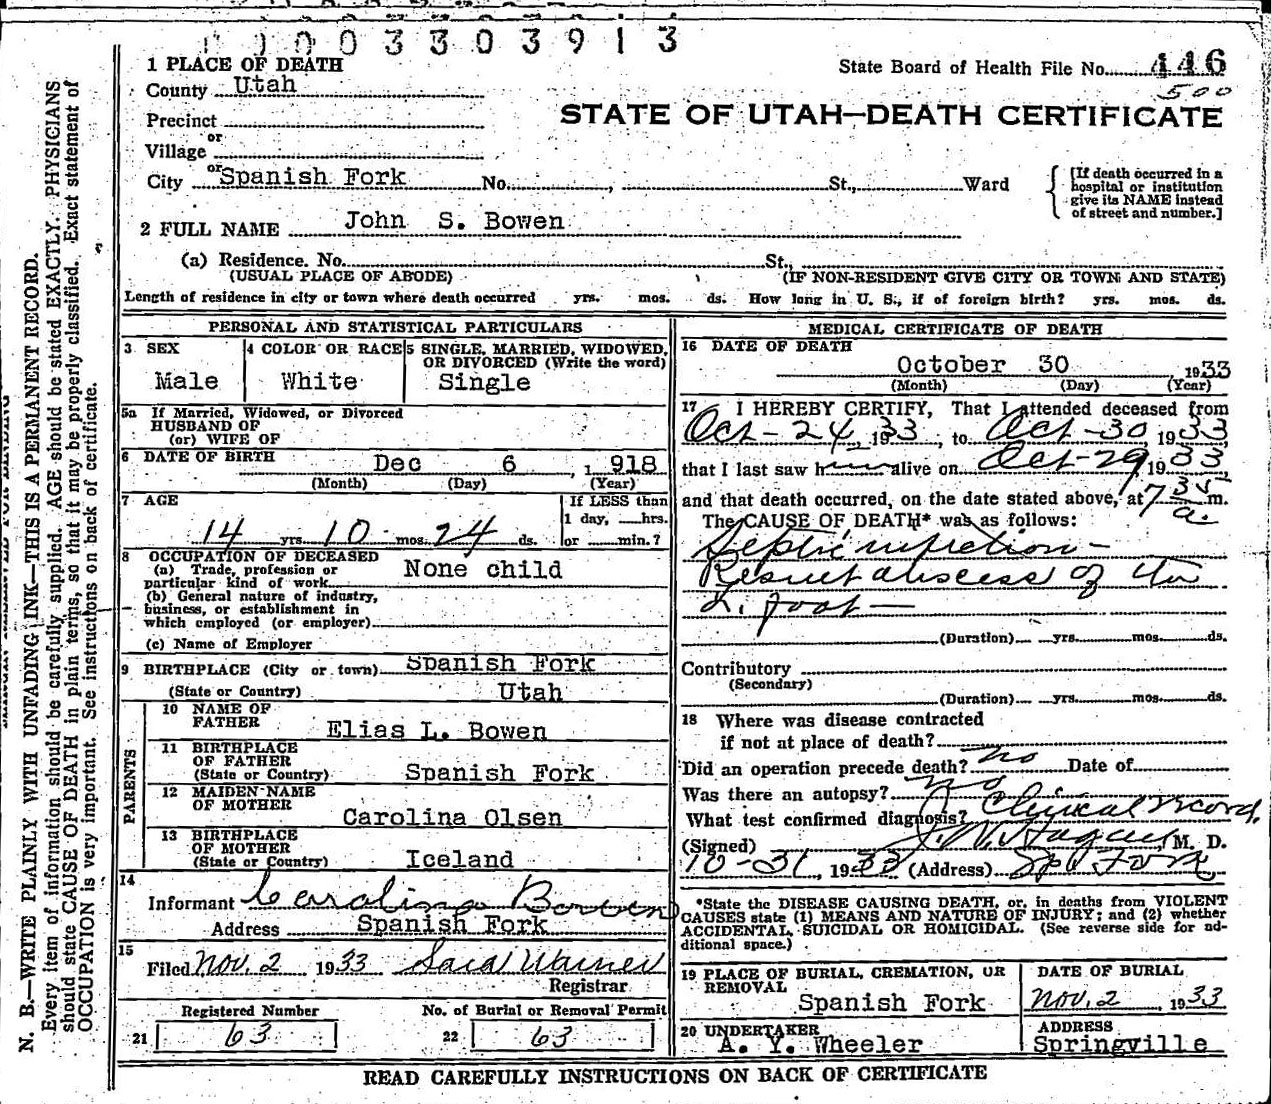 0003303913
1 PLACE OF DEATH
State Board of Health File No. 446
County Utah
500
STATE OF UTAH—DEATH CERTIFICATE
Precinct
or
Village
or
City Spanish Fork No. , St., Ward
[If death occurred in a hospital or institution give its NAME instead of street and number.]
2 FULL NAME John S. Bowen
(a) Residence. No. St.,
(USUAL PLACE OF ABODE) (IF NON-RESIDENT GIVE CITY OR TOWN AND STATE)
Length of residence in city or town where death occurred yrs. mos. ds. How long in U. S., if of foreign birth? yrs. mos. ds.
PERSONAL AND STATISTICAL PARTICULARS
3 SEX
Male
4 COLOR OR RACE
White
5 SINGLE, MARRIED, WIDOWED, OR DIVORCED (Write the word)
Single
5a If Married, Widowed, or Divorced
HUSBAND OF
(or) WIFE OF
6 DATE OF BIRTH Dec 6 , 1918
(Month) (Day) (Year)
7 AGE
14 yrs. 10 mos. 24 ds.
If LESS than
1 day, hrs.
or min.?
8 OCCUPATION OF DECEASED
(a) Trade, profession or
particular kind of work None child
(b) General nature of industry,
business, or establishment in
which employed (or employer)
(c) Name of Employer
9 BIRTHPLACE (City or town) Spanish Fork
(State or Country) Utah
PARENTS
10 NAME OF
FATHER Elias L. Bowen
11 BIRTHPLACE
OF FATHER
(State or Country) Spanish Fork
12 MAIDEN NAME
OF MOTHER Carolina Olsen
13 BIRTHPLACE
OF MOTHER
(State or Country) Iceland
14
Informant Carolina Bowen
Address Spanish Fork
15
Filed Nov. 2 1933 Sara Warner
Registrar
Registered Number
21 63
No. of Burial or Removal Permit
22 63
MEDICAL CERTIFICATE OF DEATH
16 DATE OF DEATH
October 30 , 1933
(Month) (Day) (Year)
17 I HEREBY CERTIFY, That I attended deceased from
Oct-24, 1933, to Oct-30, 1933,
that I last saw him alive on Oct-29, 1933,
and that death occurred, on the date stated above, at 7 35 a. m.
The CAUSE OF DEATH* was as follows:
Septic infection -
Result abscess of the
L. foot -
(Duration) yrs. mos. ds.
Contributory
(Secondary)
(Duration) yrs. mos. ds.
18 Where was disease contracted
if not at place of death?
Did an operation precede death? no Date of
Was there an autopsy? no
What test confirmed diagnosis? Clinical record.
(Signed) M. D.
10-31, 1933 (Address) Sp. Fork
*State the DISEASE CAUSING DEATH, or, in deaths from VIOLENT
CAUSES state (1) MEANS AND NATURE OF INJURY; and (2) whether
ACCIDENTAL, SUICIDAL OR HOMICIDAL. (See reverse side for ad-
ditional space.)
19 PLACE OF BURIAL, CREMATION, OR
REMOVAL
Spanish Fork
DATE OF BURIAL
Nov. 2, 1933
20 UNDERTAKER
A. Y. Wheeler
ADDRESS
Springville
READ CAREFULLY INSTRUCTIONS ON BACK OF CERTIFICATE
N. B.—WRITE PLAINLY WITH UNFADING INK—THIS IS A PERMANENT RECORD.
Every item of information should be carefully supplied. AGE should be stated EXACTLY. PHYSICIANS
should state CAUSE OF DEATH in plain terms, so that it may be properly classified. Exact statement of
OCCUPATION is very important. See instructions on back of certificate.